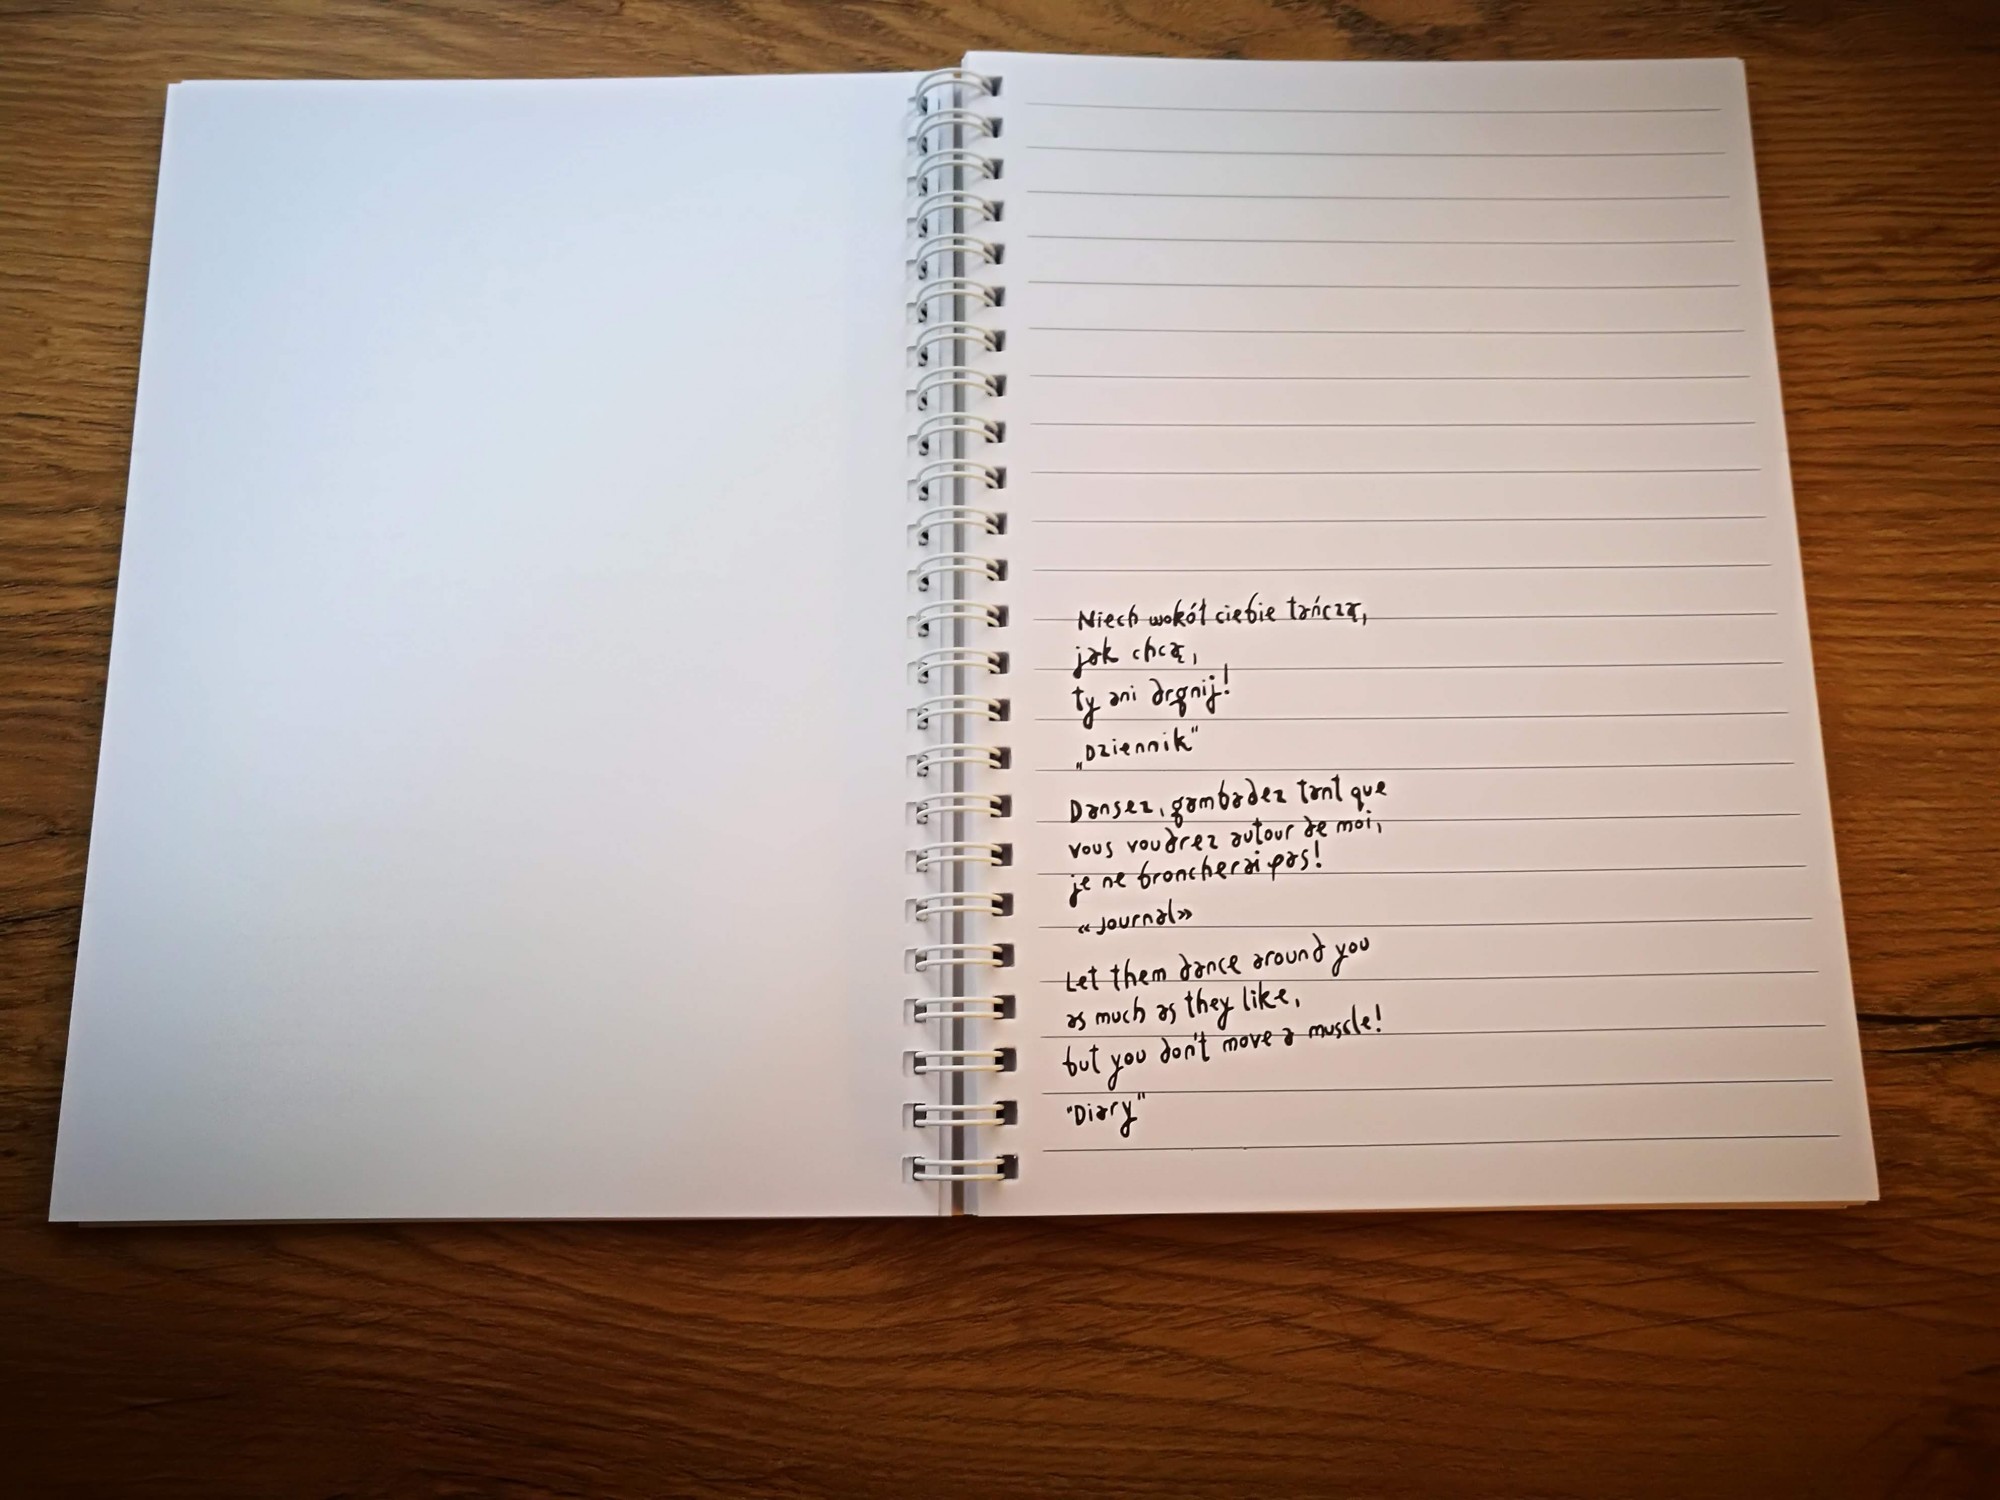 Niech wokół ciebie tańczą,
jak chcą,
ty ani drgnij!
„Dziennik”
Dansez, gambadez tant que
vous voudrez autour de moi,
je ne broncherai pas!
«Journal»
Let them dance around you
as much as they like,
but you don't move a muscle!
"Diary"